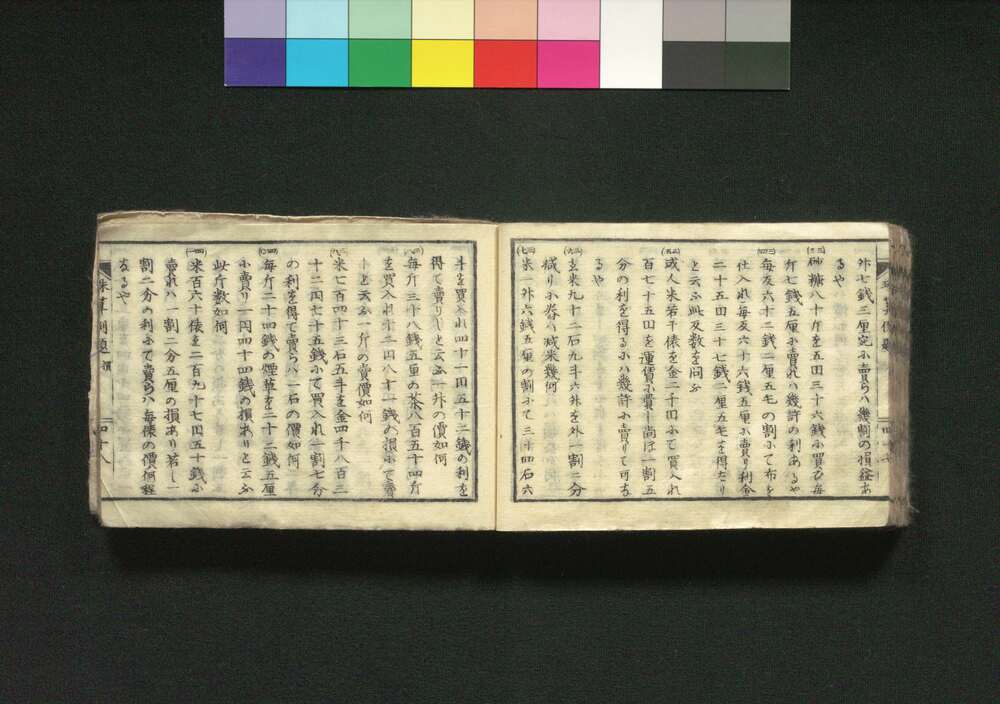 升七銭三厘宛ニ賣らハ幾割の損益あ
るや
(三五)砂糖八十斤を五円三十六銭ニ買ひ毎
斤七銭五厘ニ賣れハ幾許の利あるや
(三四)毎反六十二銭二厘五毛の割ニて布を
仕入れ毎反六十六銭五厘ニ賣り利金
二十五円三十七銭二厘五毛を得たり
と云ふ此反数を問ふ
或人米若干俵を金二千円ニて買入れ
百七十五円を運賃ニ費し尚ほ一割五
分の利を得るニハ幾許ニ賣りて可な
るや
玄米九十二石九斗六升を外一割一分
減りニ舂ハ減米幾何
(三七)米一升六銭五厘の割ニて三十四石六
斗を買入れ四十一円五十二銭の利を
得て賣りしと云ふ一升の價如何
毎斤三十八銭五厘の茶八百五十四斤
を買入れ十二円八十一銭の損ニて賣
しと云ふ一斤の賣價如何
米七百四十三石五斗を金四千八百三
十二円七十五銭ニて買入れ一割七分
の利を得て賣らハ一石の價如何
(四〇)毎斤二十四銭の煙草を二十二銭五厘
ニ賣り一円四十四銭の損ありと云ふ
此斤数如何
(四一)米百六十俵を二百九十七円五十銭ニ
賣れハ一割二分五厘の損あり若し一
割二分の利ニて賣らハ毎俵の價何程
なるや
珠算例題 損
四十八